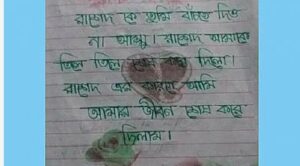 রাশেদ কে তুমি বাঁচতে দিও
না আব্বু। রাশেদ আমাকে
তিলে তিলে শেষ করে দিলো।
রাশেদ এর কারণে আমি
আমার জীবন শেষ করে
দিলাম।